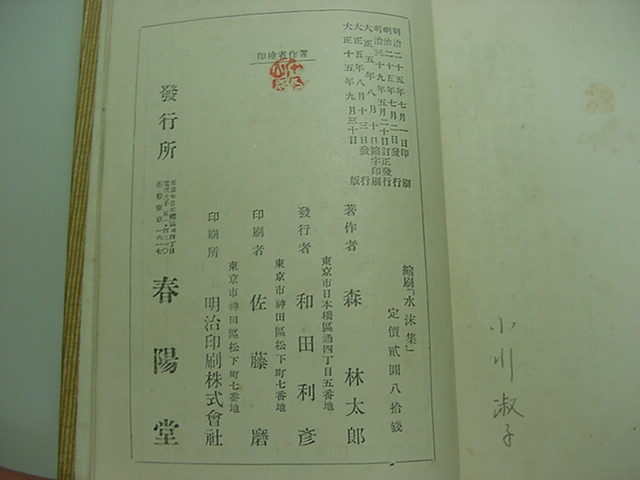 明治二十五年七月一日印刷
明治二十五年七月二日發行
明治三十九年五月二十日訂正發行
大正五年八月十日縮字印刷
大正五年八月十三日發行
大正十五年九月三十日 版
縮刷「水沫集」
定價貳圓八拾錢
著作者 森林太郎
東京市日本橋區通四丁目五番地
發行者 和田利彦
東京市神田區松下町七番地
印刷者 佐藤磨
東京市神田區松下町七番地
印刷所 明治印刷株式會社
著作者檢印
發行所
春陽堂
小川淑子